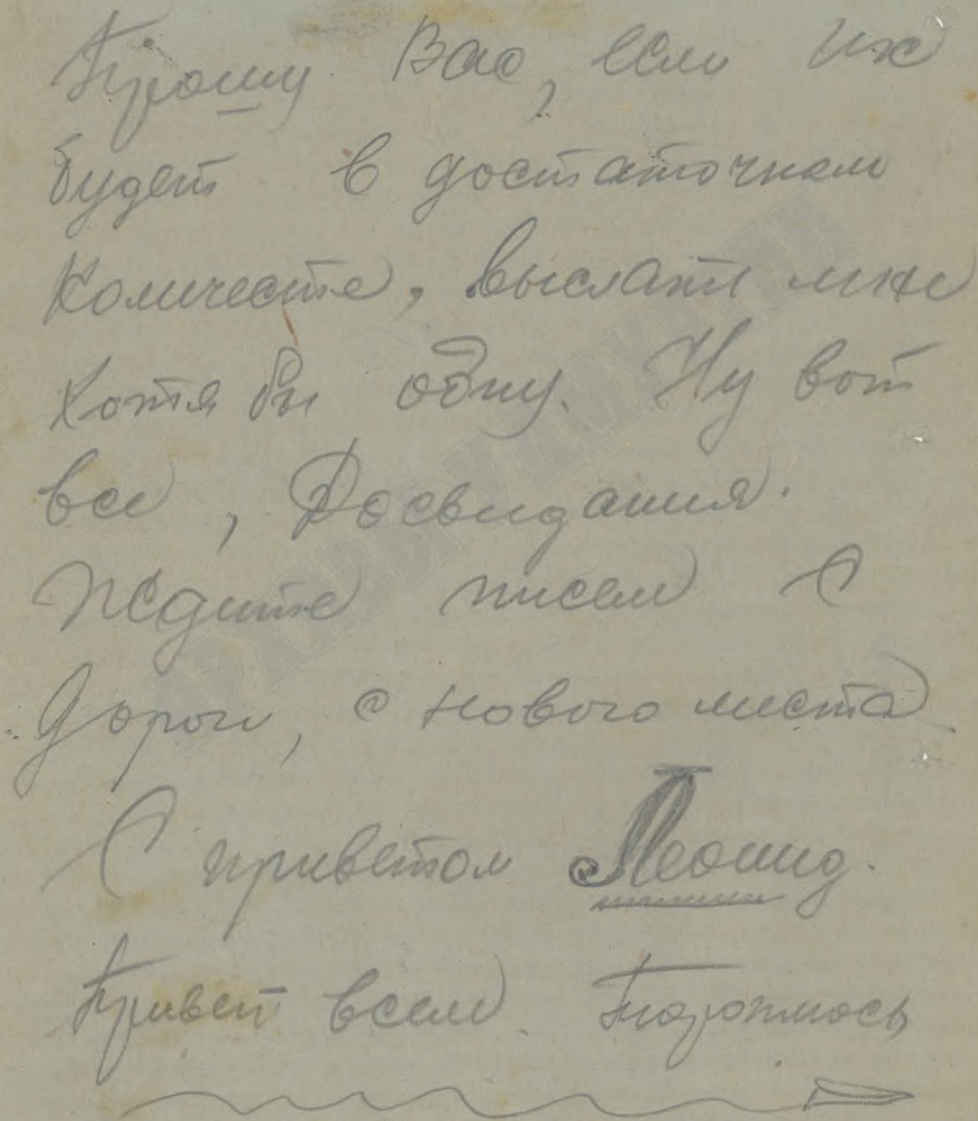 Прошу Вас, если их
будет в достаточном
количесте, выслать мне
хотя бы одну. Ну вот
все, Досвидания.
Ждите писем с
дороги, с нового места
С приветом Леонид.
Привет всем. Тороплюсь